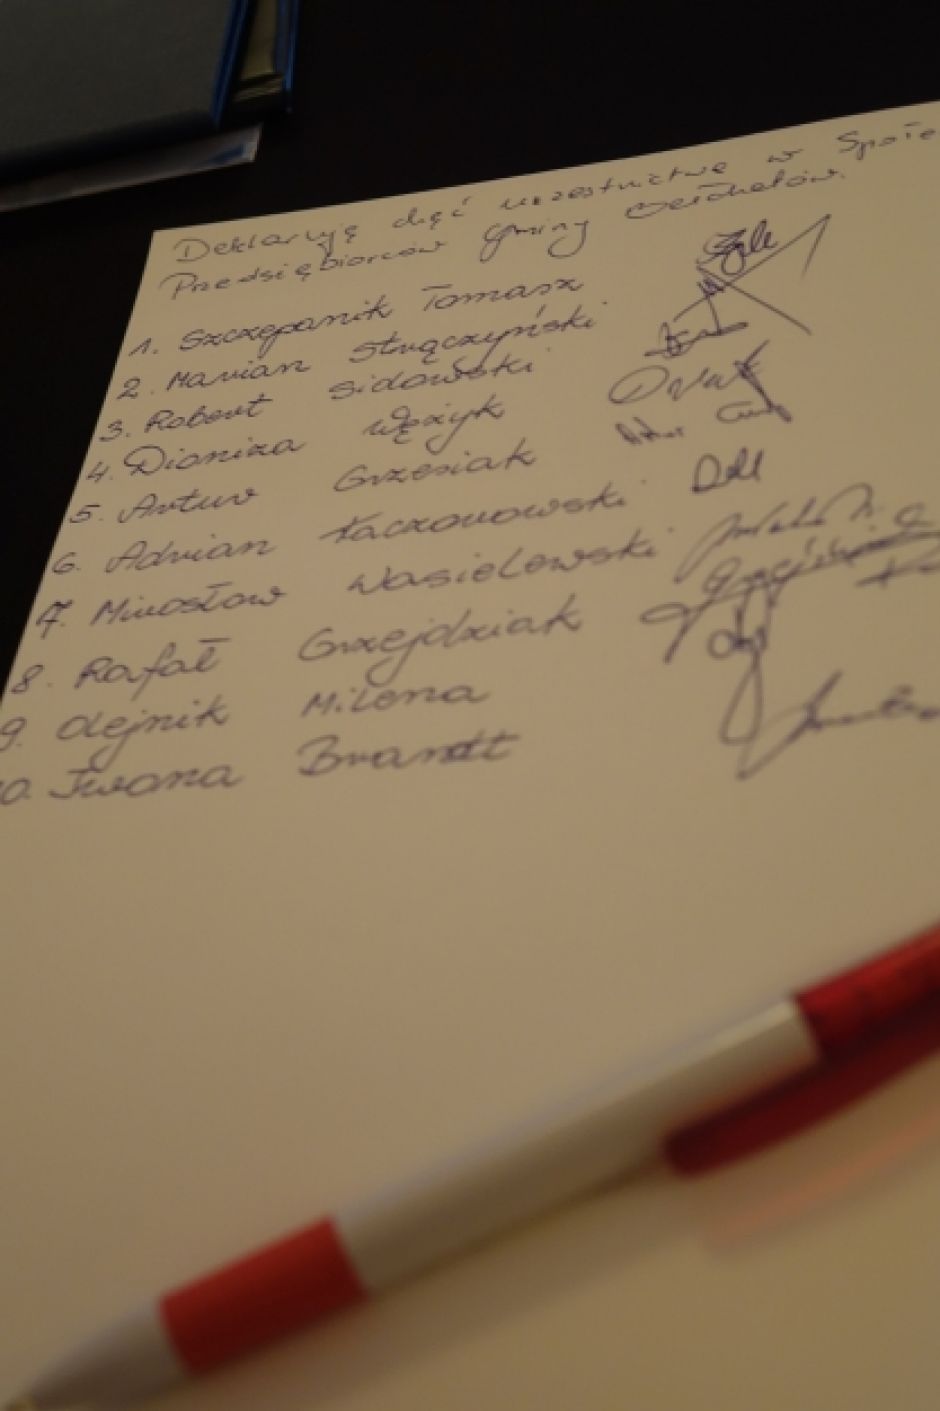 Deklaruję chęć uczestnictwa w Społe
Przedsiębiorców gminy Bełchatów.
1. Szczepanik Tomasz
2. Marian Strączyński
3. Robert Sidowski
4. Dioniza Wężyk
5. Artur Grzesiak
6. Adrian Kaczorowski
7. Mirosław Wasielewski
8. Rafał Grzejdziak
9. Olejnik Milena
10. Iwona Brandt